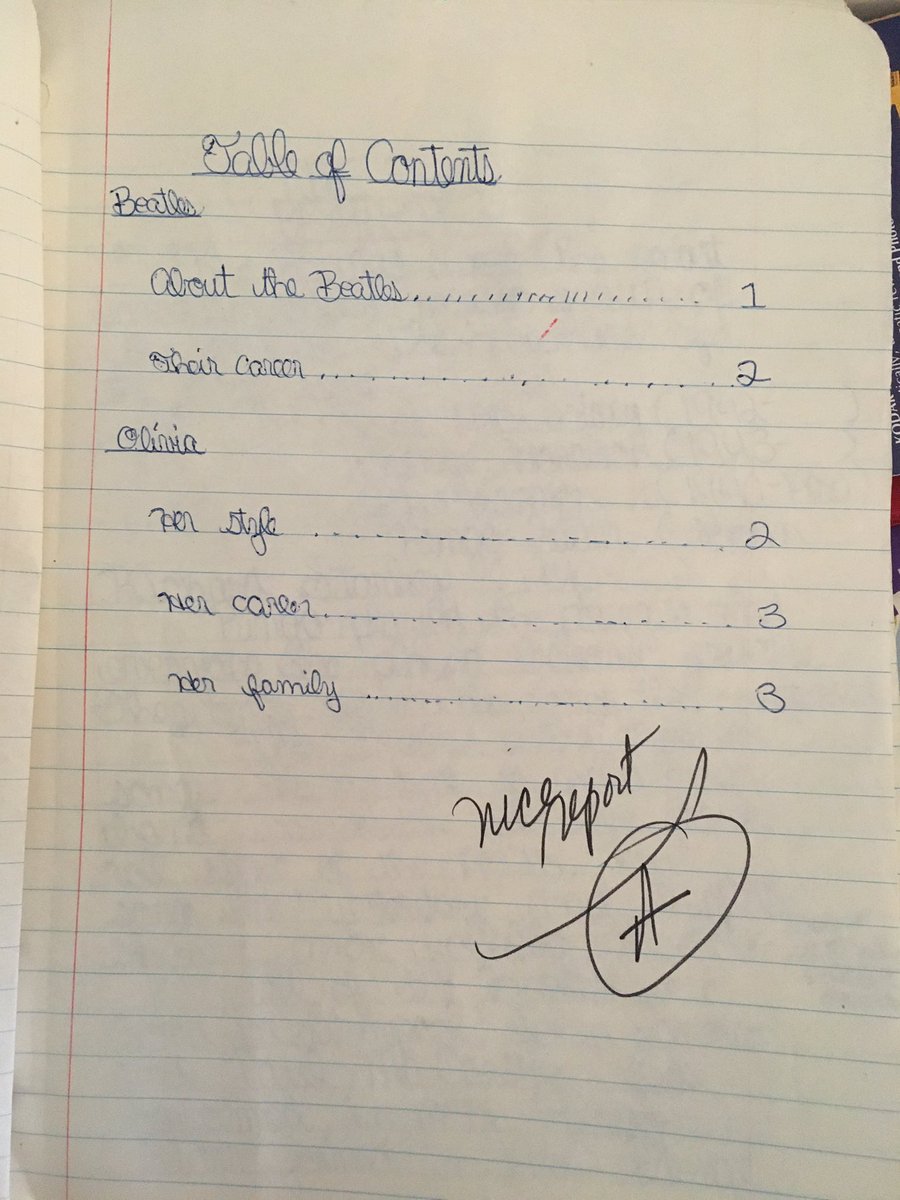 Table of Contents
Beatles
About the Beatles.............................. 1
Their career.............................. 2
Olivia
Her style .............................. 2
Her career.............................. 3
Her family .............................. 3
nice report
A
KODAK